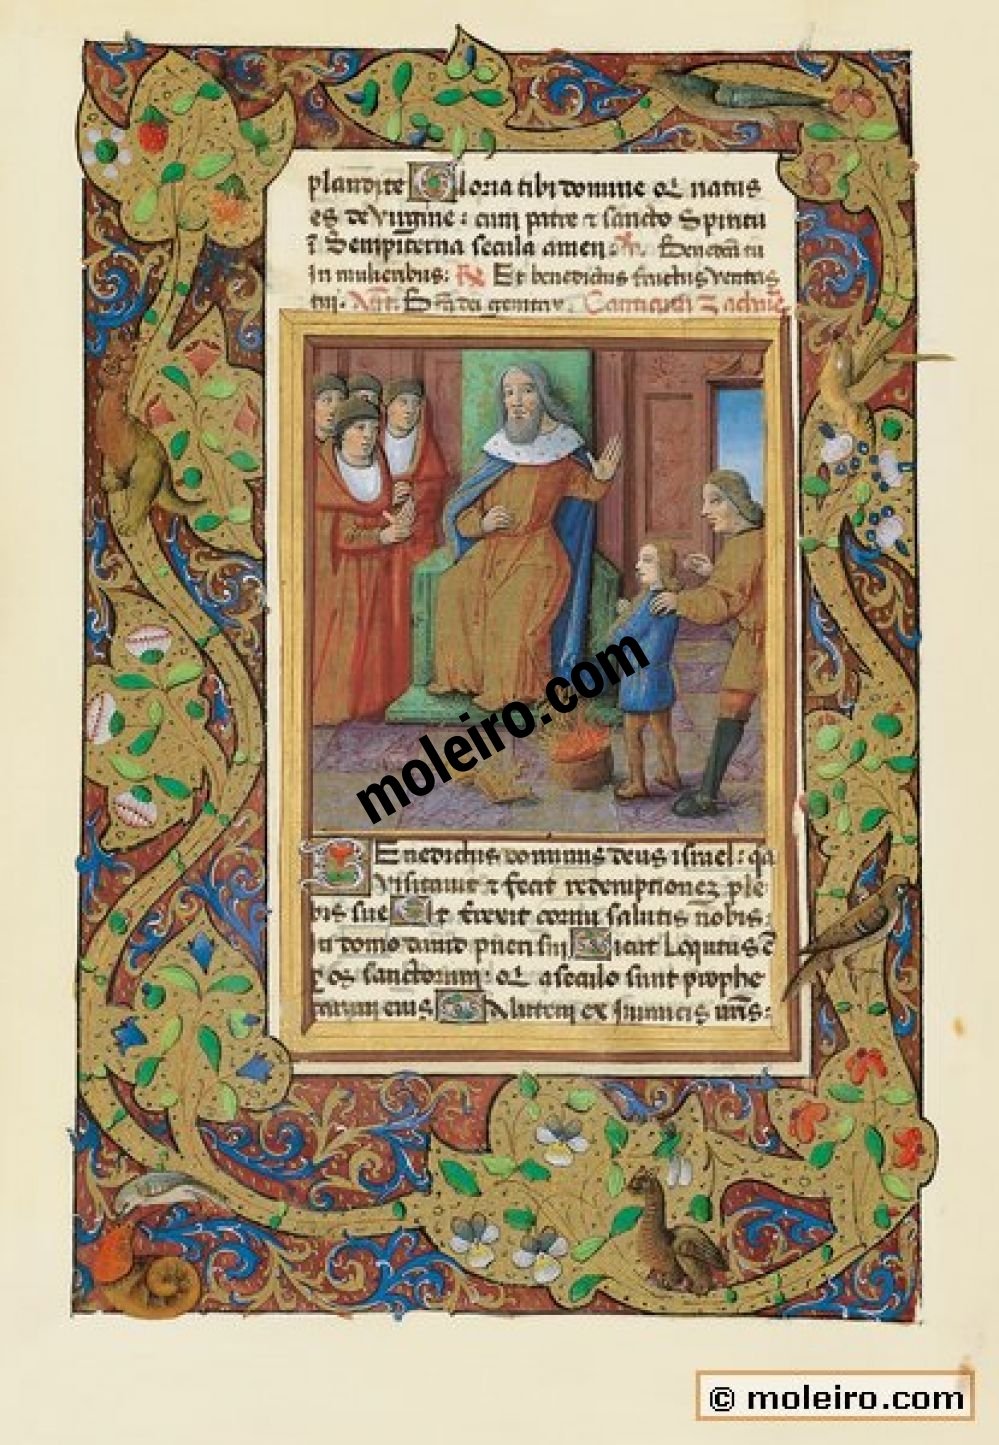 plaudite Gloria tibi domine qui natus
es de virgine: cum patre et sancto Spiritu
ī Sempiterna secula amen. Benedcā tu
in mulieribus: R Et benedictus fructus ventris
tui. Ant. Scā dei genitrix. Canticum Zacharie
moleiro.com
Benedictus dominus deus israel: qa
visitavit et fecit redemptionez ple
bis sue Et erexit cornu salutis nobis:
in domo david pueri sui Sicut Loqutus ē
p os sanctorum: qui a seculo sunt prophe
tarum eius Salutem ex inimicis nr̄is:
© moleiro.com